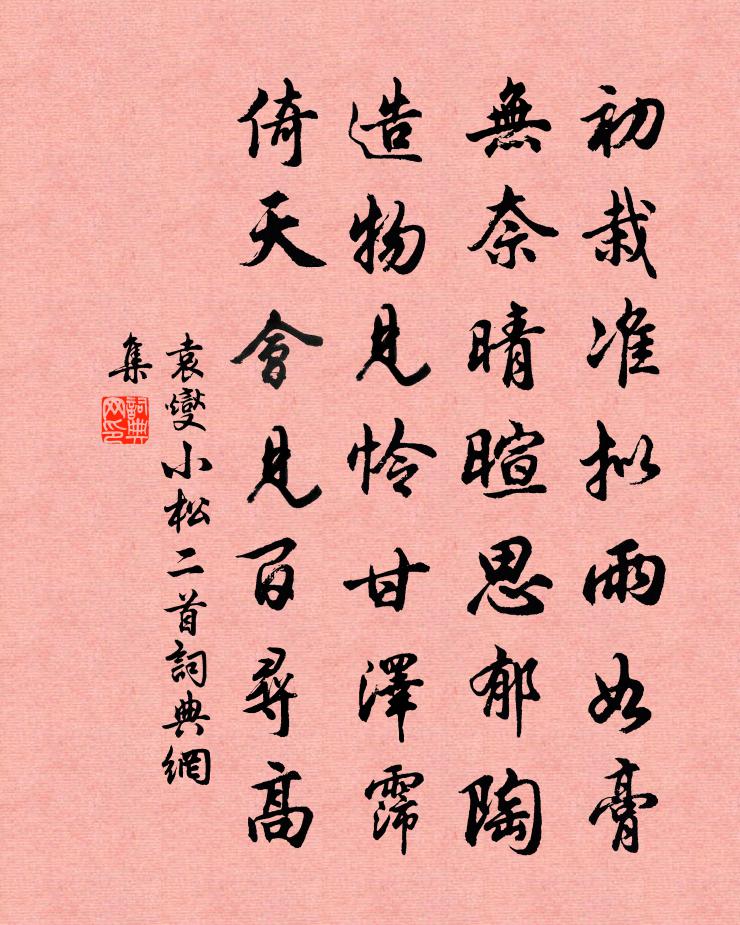 初栽准拟雨如膏
無奈晴暄思郁陶
造物見怜甘澤霈
倚天會見百尋高
袁燮小松二首詞典網
集
詞典
网印